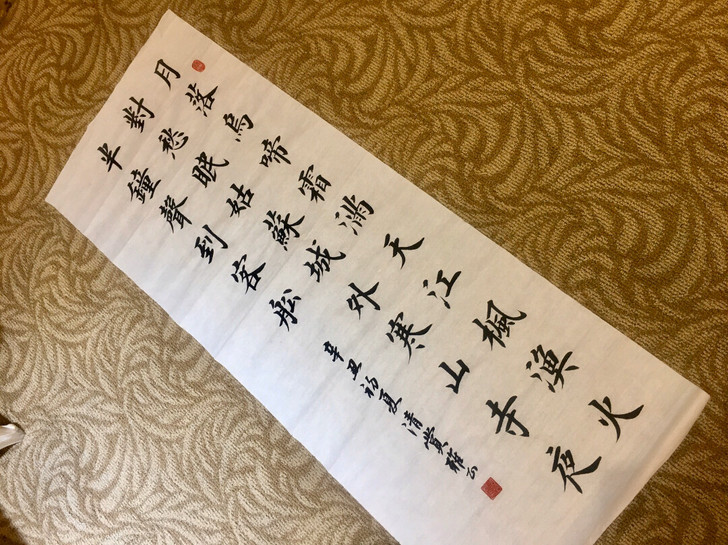 月落烏啼霜滿天江楓漁火
對愁眠姑蘇城外寒山寺夜
半鐘聲到客舩
辛丑初夏清賞雅正